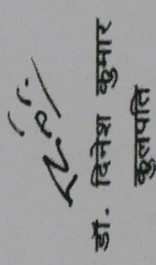 डॉ. दिनेश कुमार
कुलपति